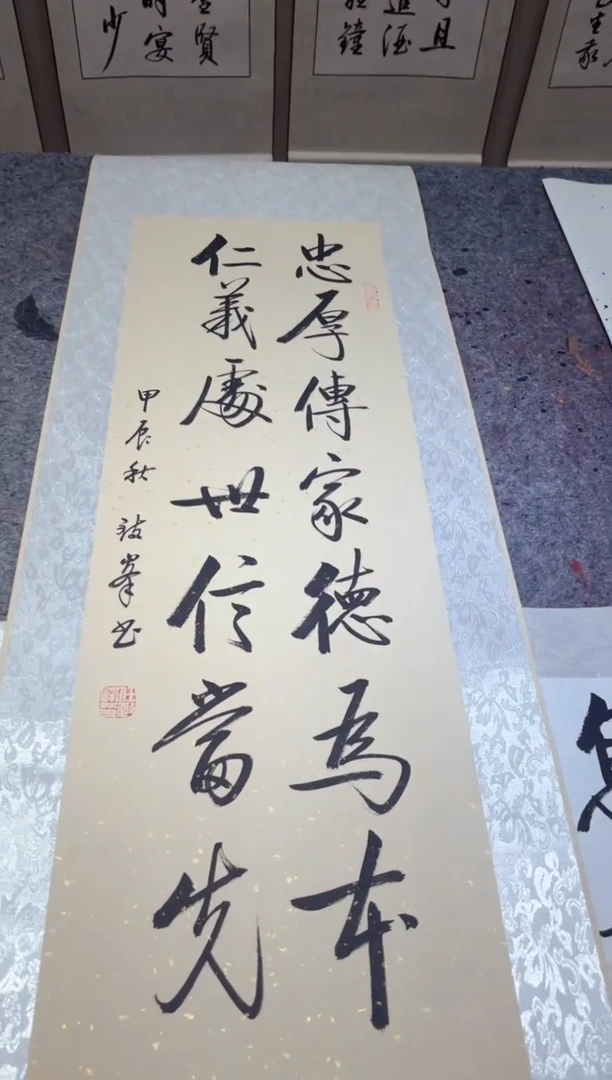 忠厚傳家德為本
仁義處世信當先
甲辰秋
峯书